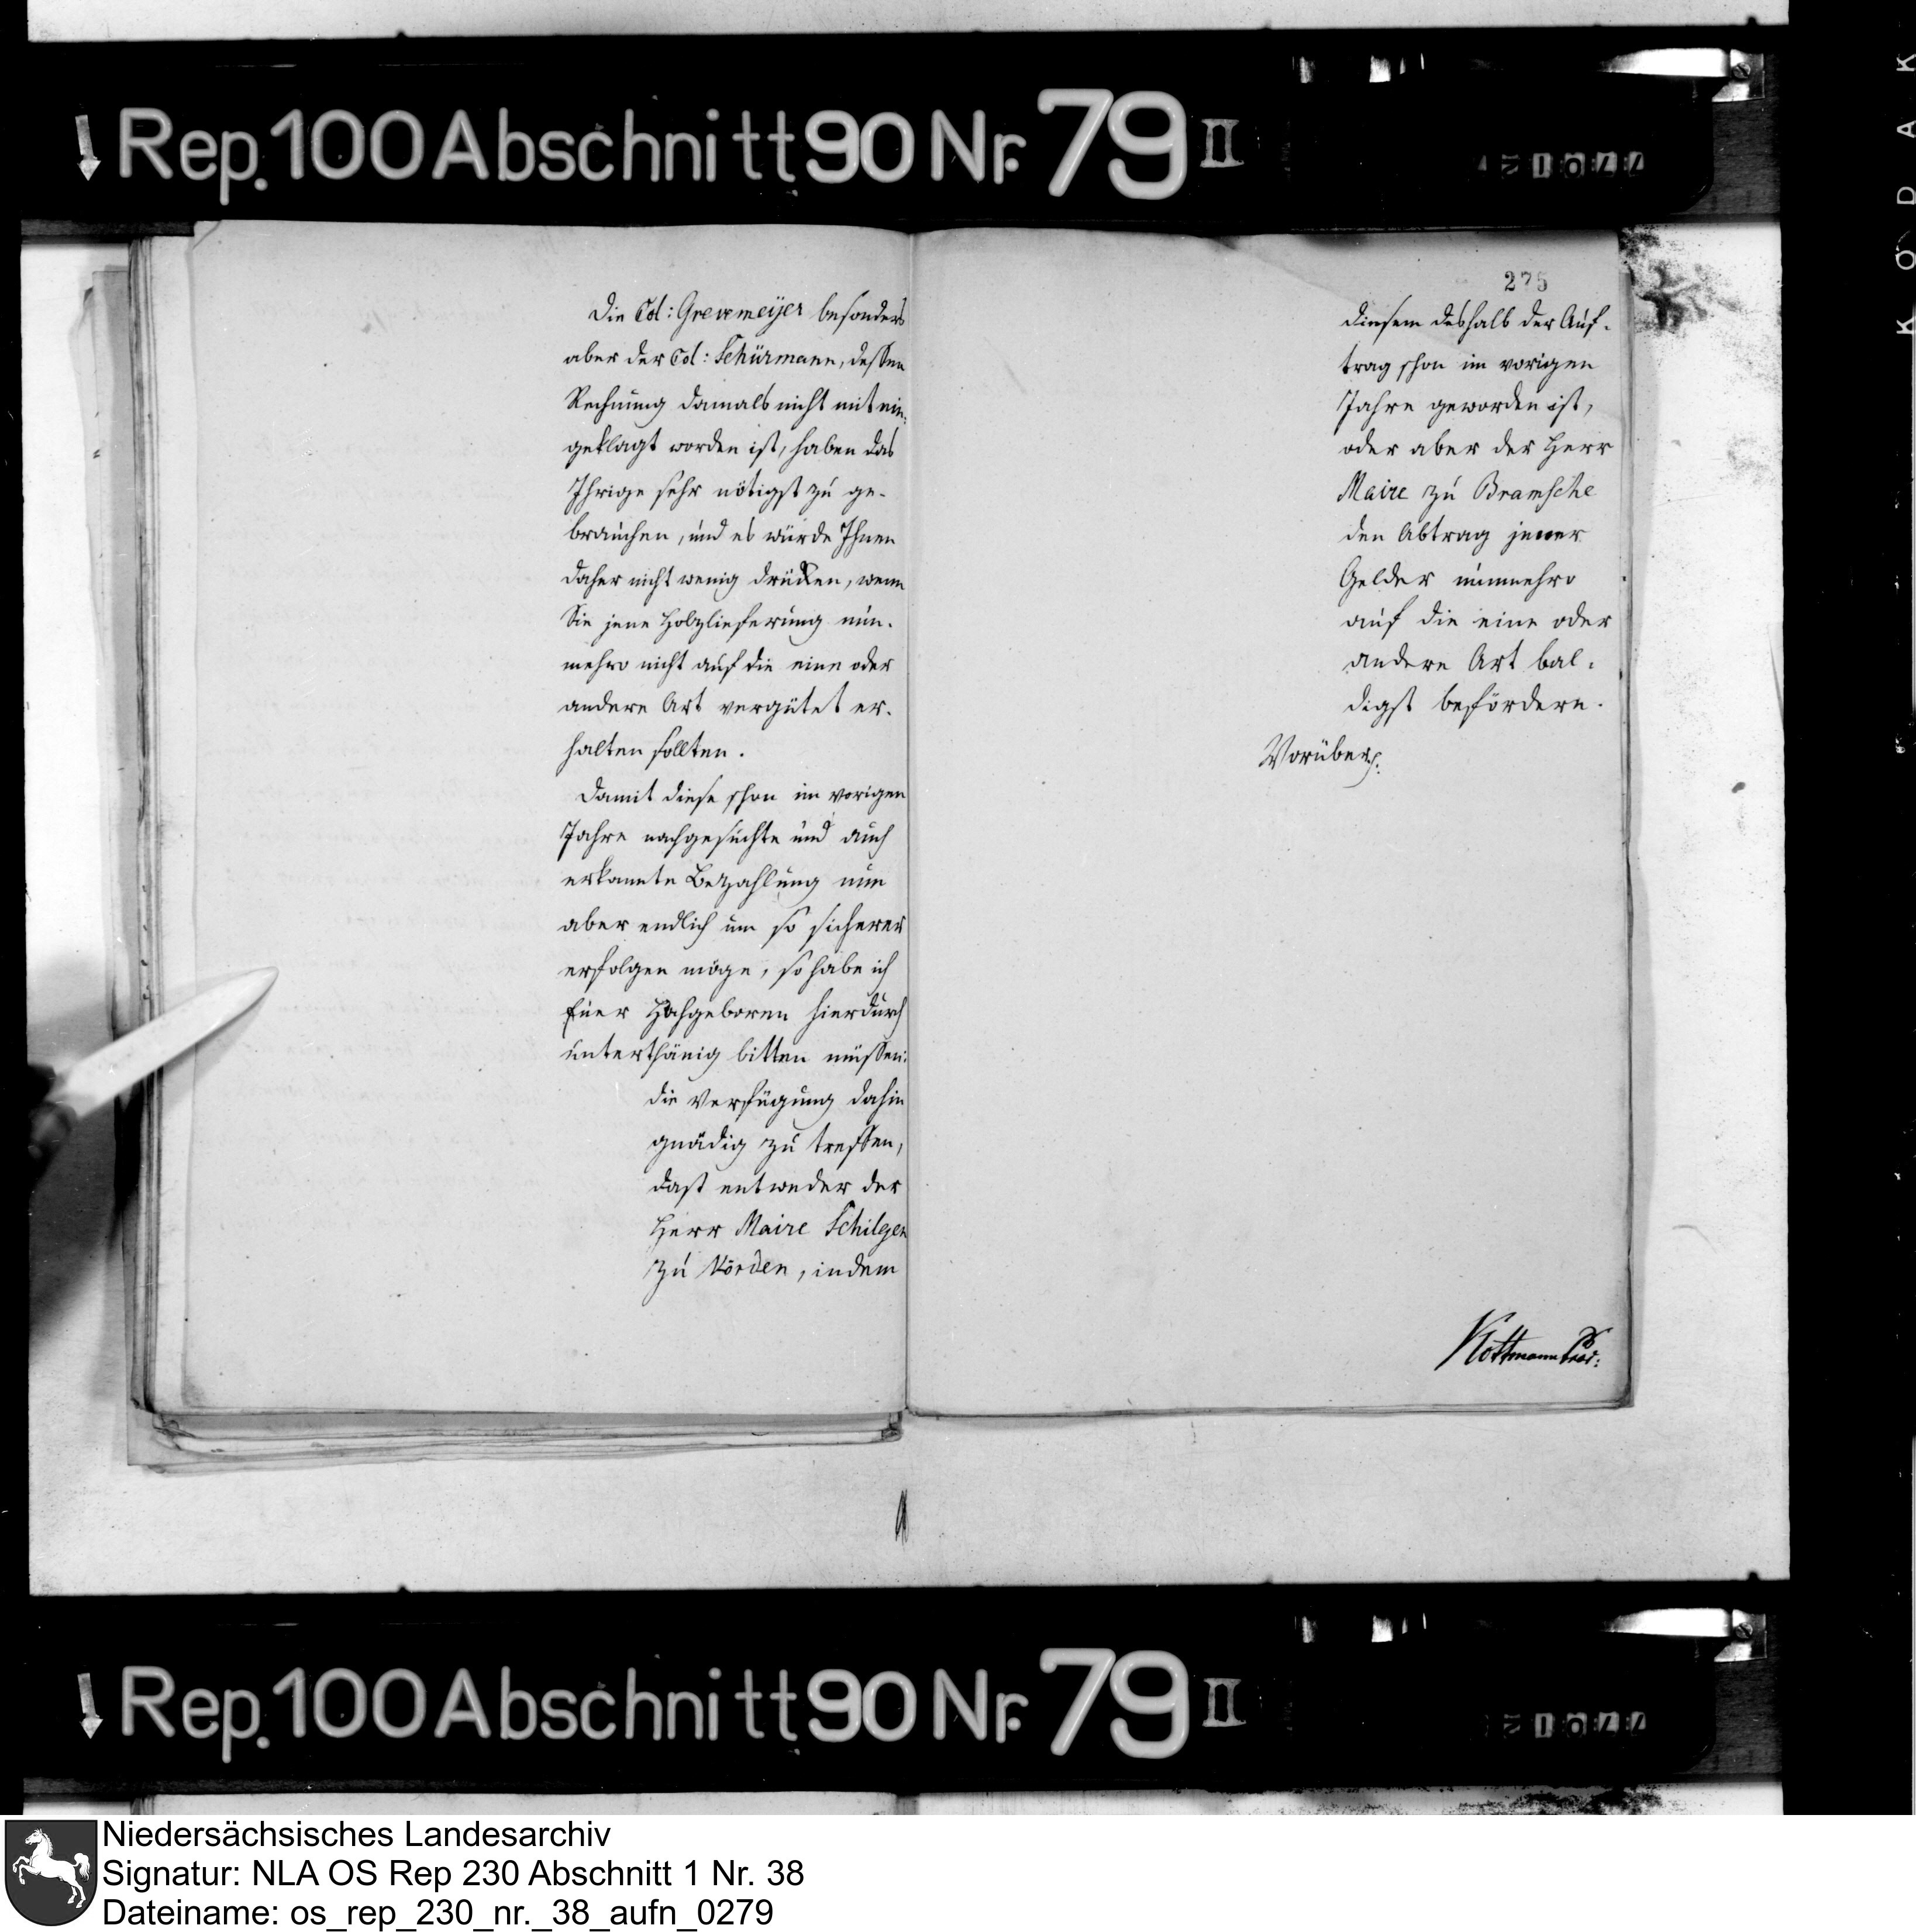 Rep. 100 Abschnitt 90 Nr. 79 II
KODAK
Die Col: Grevemeijer besonders
aber der Col: Schürmann, dessen
Rechnung damals nicht mit ein-
geklagt worden ist, haben das
Ihrige sehr nötigst zu ge-
brauchen, und es würde Ihnen
daher nicht wenig drücken, wenn
Sie jene Holzlieferung nun-
mehro nicht auf die eine oder
andere Art vergütet er-
halten sollten.
Damit diese schon im vorigen
Jahre nachgesuchte und auch
erkannte Bezahlung nun
aber endlich um so sicherer
erfolgen möge, so habe ich
Euer Hochgeboren hierdurch
unterthänig bitten müssen:
die Verfügung dahin
gnädig zu treffen,
dast entweder der
Herr Maire Schilgen
zu Vörden, indem
275
diesem deshalb der Auf-
trag schon im vorigen
Jahre geworden ist,
oder aber der Herr
Maire zu Bramsche
den Abtrag jener
Gelder nunmehro
auf die eine oder
andere Art bal-
digst befördere.
Vorüber
Kottmann
Rep. 100 Abschnitt 90 Nr. 79 II
Niedersächsisches Landesarchiv
Signatur: NLA OS Rep 230 Abschnitt 1 Nr. 38
Dateiname: os_rep_230_nr._38_aufn_0279